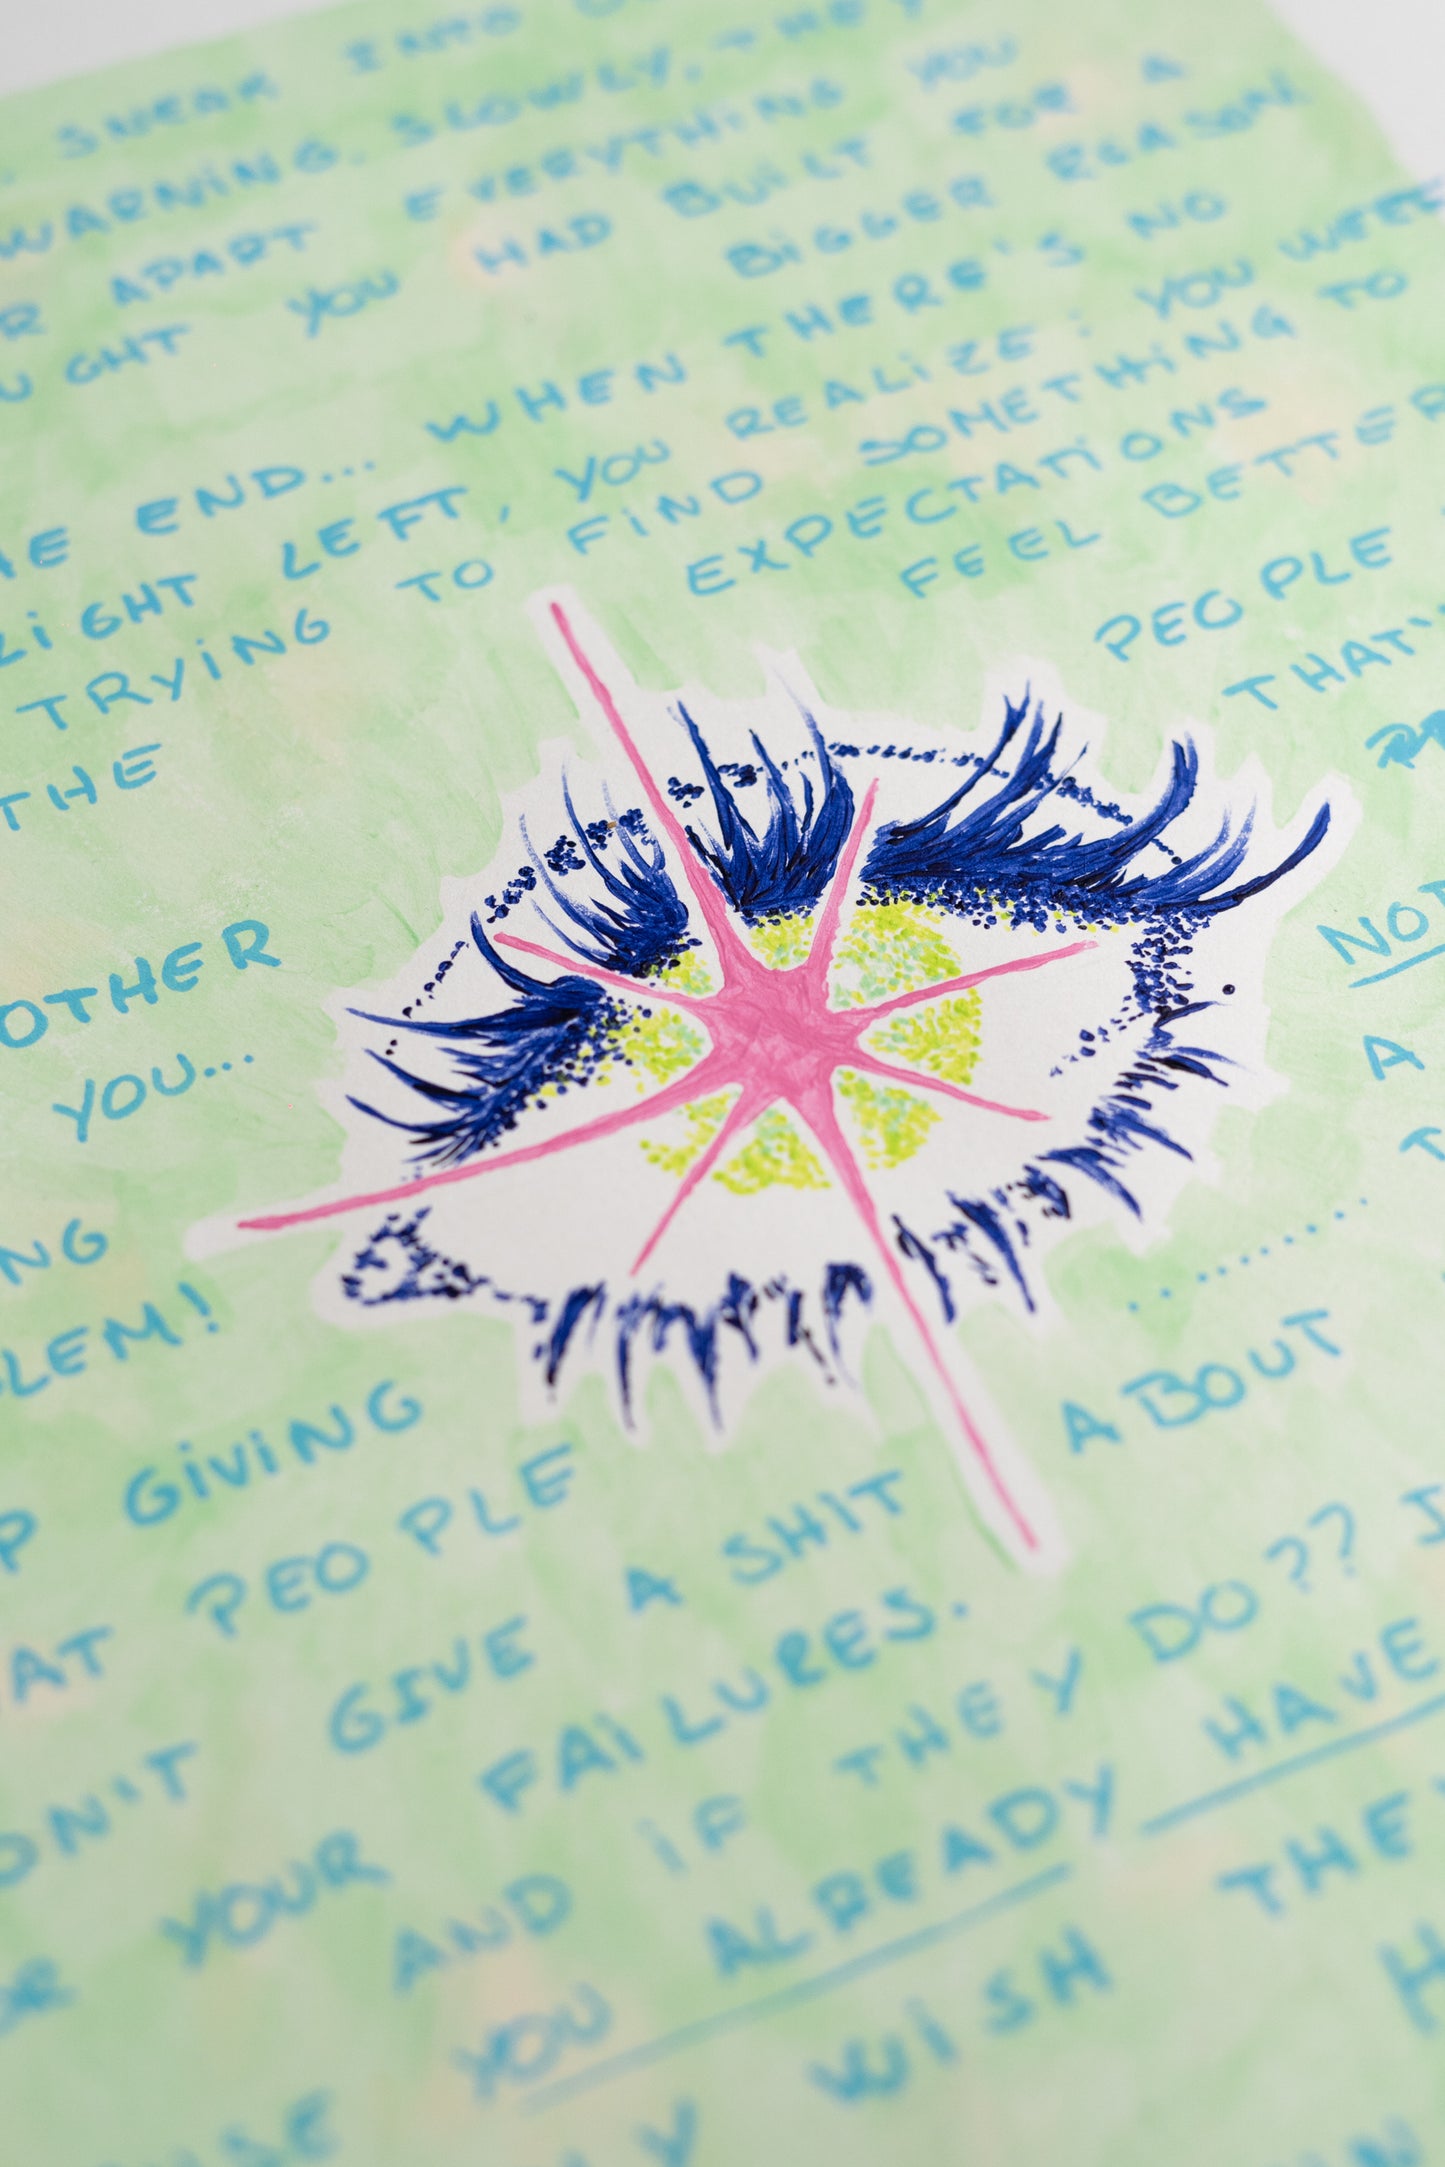 SNEAK INTO
WARNING. SLOWLY, THEY
R APART EVERYTHING YOU
UGHT YOU HAD BUILT FOR A
BiGGER REASON
HE END... WHEN THERE'S NO
RiGHT LEFT, YOU REALiZE : YOU WERE
TRYiNG TO FiND SOMETHiNG TO
THE EXPECTATiONS
FEEL BETTER
OTHER PEOPLE
YOU... THAT'
NOT
NG A
LEM!
..........
P GiViNG ABOUT
AT PEOPLE
ON'T GIVE A SHIT
OR YOUR FAiLURES.
AND iF THEY DO?? I
USE YOU ALREADY HAVE
LY WiSH THE